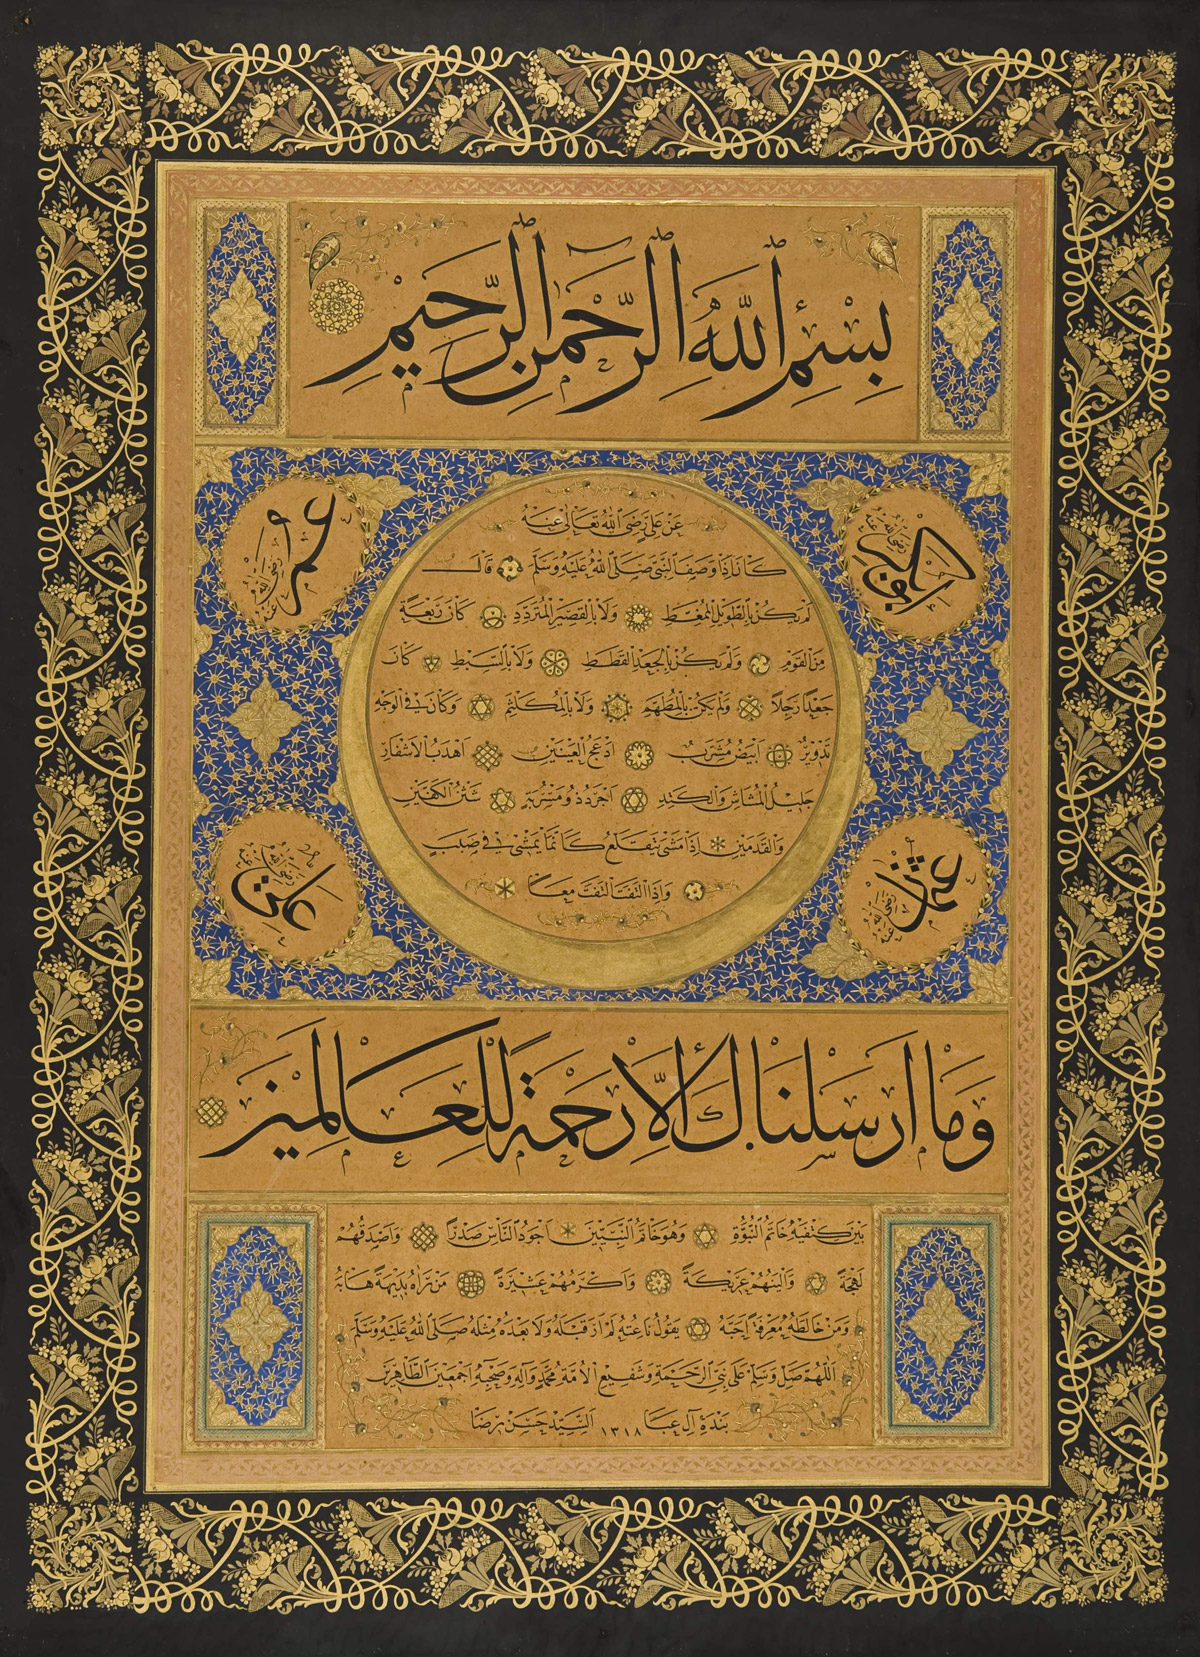 بِسْمِ اللّٰهِ الرَّحْمٰنِ الرَّحِيمِ
ابو بكر رضي الله عنه
عمر رضي الله عنه
عَنْ عَلِيٍّ رَضِيَ اللّٰهُ تَعَالٰى عَنْهُ
كَانَ اِذَا وَصَفَ النَّبِيَّ صَلَّى اللّٰهُ عَلَيْهِ وَسَلَّمَ قَالَ
لَمْ يَكُنْ بِالطَّوِيلِ الْمُمَّغِطِ وَلَا بِالْقَصِيرِ الْمُتَرَدِّدِ كَانَ رَبْعَةً
مِنَ الْقَوْمِ وَلَمْ يَكُنْ بِالْجَعْدِ الْقَطَطِ وَلَا بِالسَّبِطِ كَانَ
جَعْدًا رَجِلًا وَلَمْ يَكُنْ بِالْمُطَهَّمِ وَلَا بِالْمُكَلْثَمِ وَكَانَ فِي الْوَجْهِ
تَدْوِيرٌ اَبْيَضُ مُشْرَبٌ اَدْعَجُ الْعَيْنَيْنِ اَهْدَبُ الْاَشْفَارِ
جَلِيلُ الْمُشَاشِ وَالْكَتَدِ اَجْرَدُ ذُو مَسْرُبَةٍ شَثْنُ الْكَفَّيْنِ
وَالْقَدَمَيْنِ اِذَا مَشٰى يَتَقَلَّعُ كَاَنَّمَا يَمْشِي فِي صَبَبٍ
وَاِذَا الْتَفَتَ الْتَفَتَ مَعًا
عثمان رضي الله عنه
على رضي الله عنه
وَمَا اَرْسَلْنَاكَ اِلَّا رَحْمَةً لِلْعَالَمِينَ
بَيْنَ كَتِفَيْهِ خَاتَمُ النُّبُوَّةِ وَهُوَ خَاتَمُ النَّبِيِّينَ اَجْوَدُ النَّاسِ صَدْرًا وَاَصْدَقُهُمْ
لَهْجَةً وَاَلْيَنُهُمْ عَرِيكَةً وَاَكْرَمُهُمْ عَشِيرَةً مَنْ رَاٰهُ بَدِيهَةً هَابَهُ
وَمَنْ خَالَطَهُ مَعْرِفَةً اَحَبَّهُ يَقُولُ نَاعِتُهُ لَمْ اَرَ قَبْلَهُ وَلَا بَعْدَهُ مِثْلَهُ صَلَّى اللّٰهُ عَلَيْهِ وَسَلَّمَ
اَللّٰهُمَّ صَلِّ وَسَلِّمْ عَلٰى نَبِيِّ الرَّحْمَةِ وَشَفِيعِ الْاُمَّةِ مُحَمَّدٍ وَاٰلِهِ وَصَحْبِهِ اَجْمَعِينَ الطَّاهِرِينَ
بَنْدَهِٔ اٰلِ عَبَا ١٣١٨ اَلسَّيِّدْ حَسَنْ رِضَا